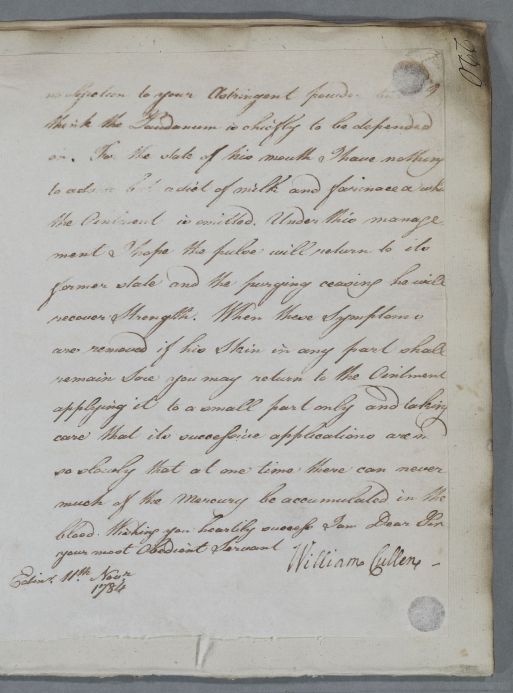 220
no objection to your Astringent powder but
think the Laudanum is chiefly to be depended
on. For the state of his mouth I have nothing
to advise but a diet of milk and farinacea while
the Ointment is omitted. Under this manage
ment I hope the pulse will return to its
former state and the purging ceasing he will
recover Strength. When these Symptoms
are removed if his Skin in any part shall
remain sore you may return to the Ointment
applying it to a small part only and taking
care that its successive applications are
so slowly that at one time there can never
much of the Mercury be accumulated in the
blood. Wishing you heartily success I am Dear Sir
your most Obedient Servant
William Cullen
Edinr. 11th. Novr.
1784